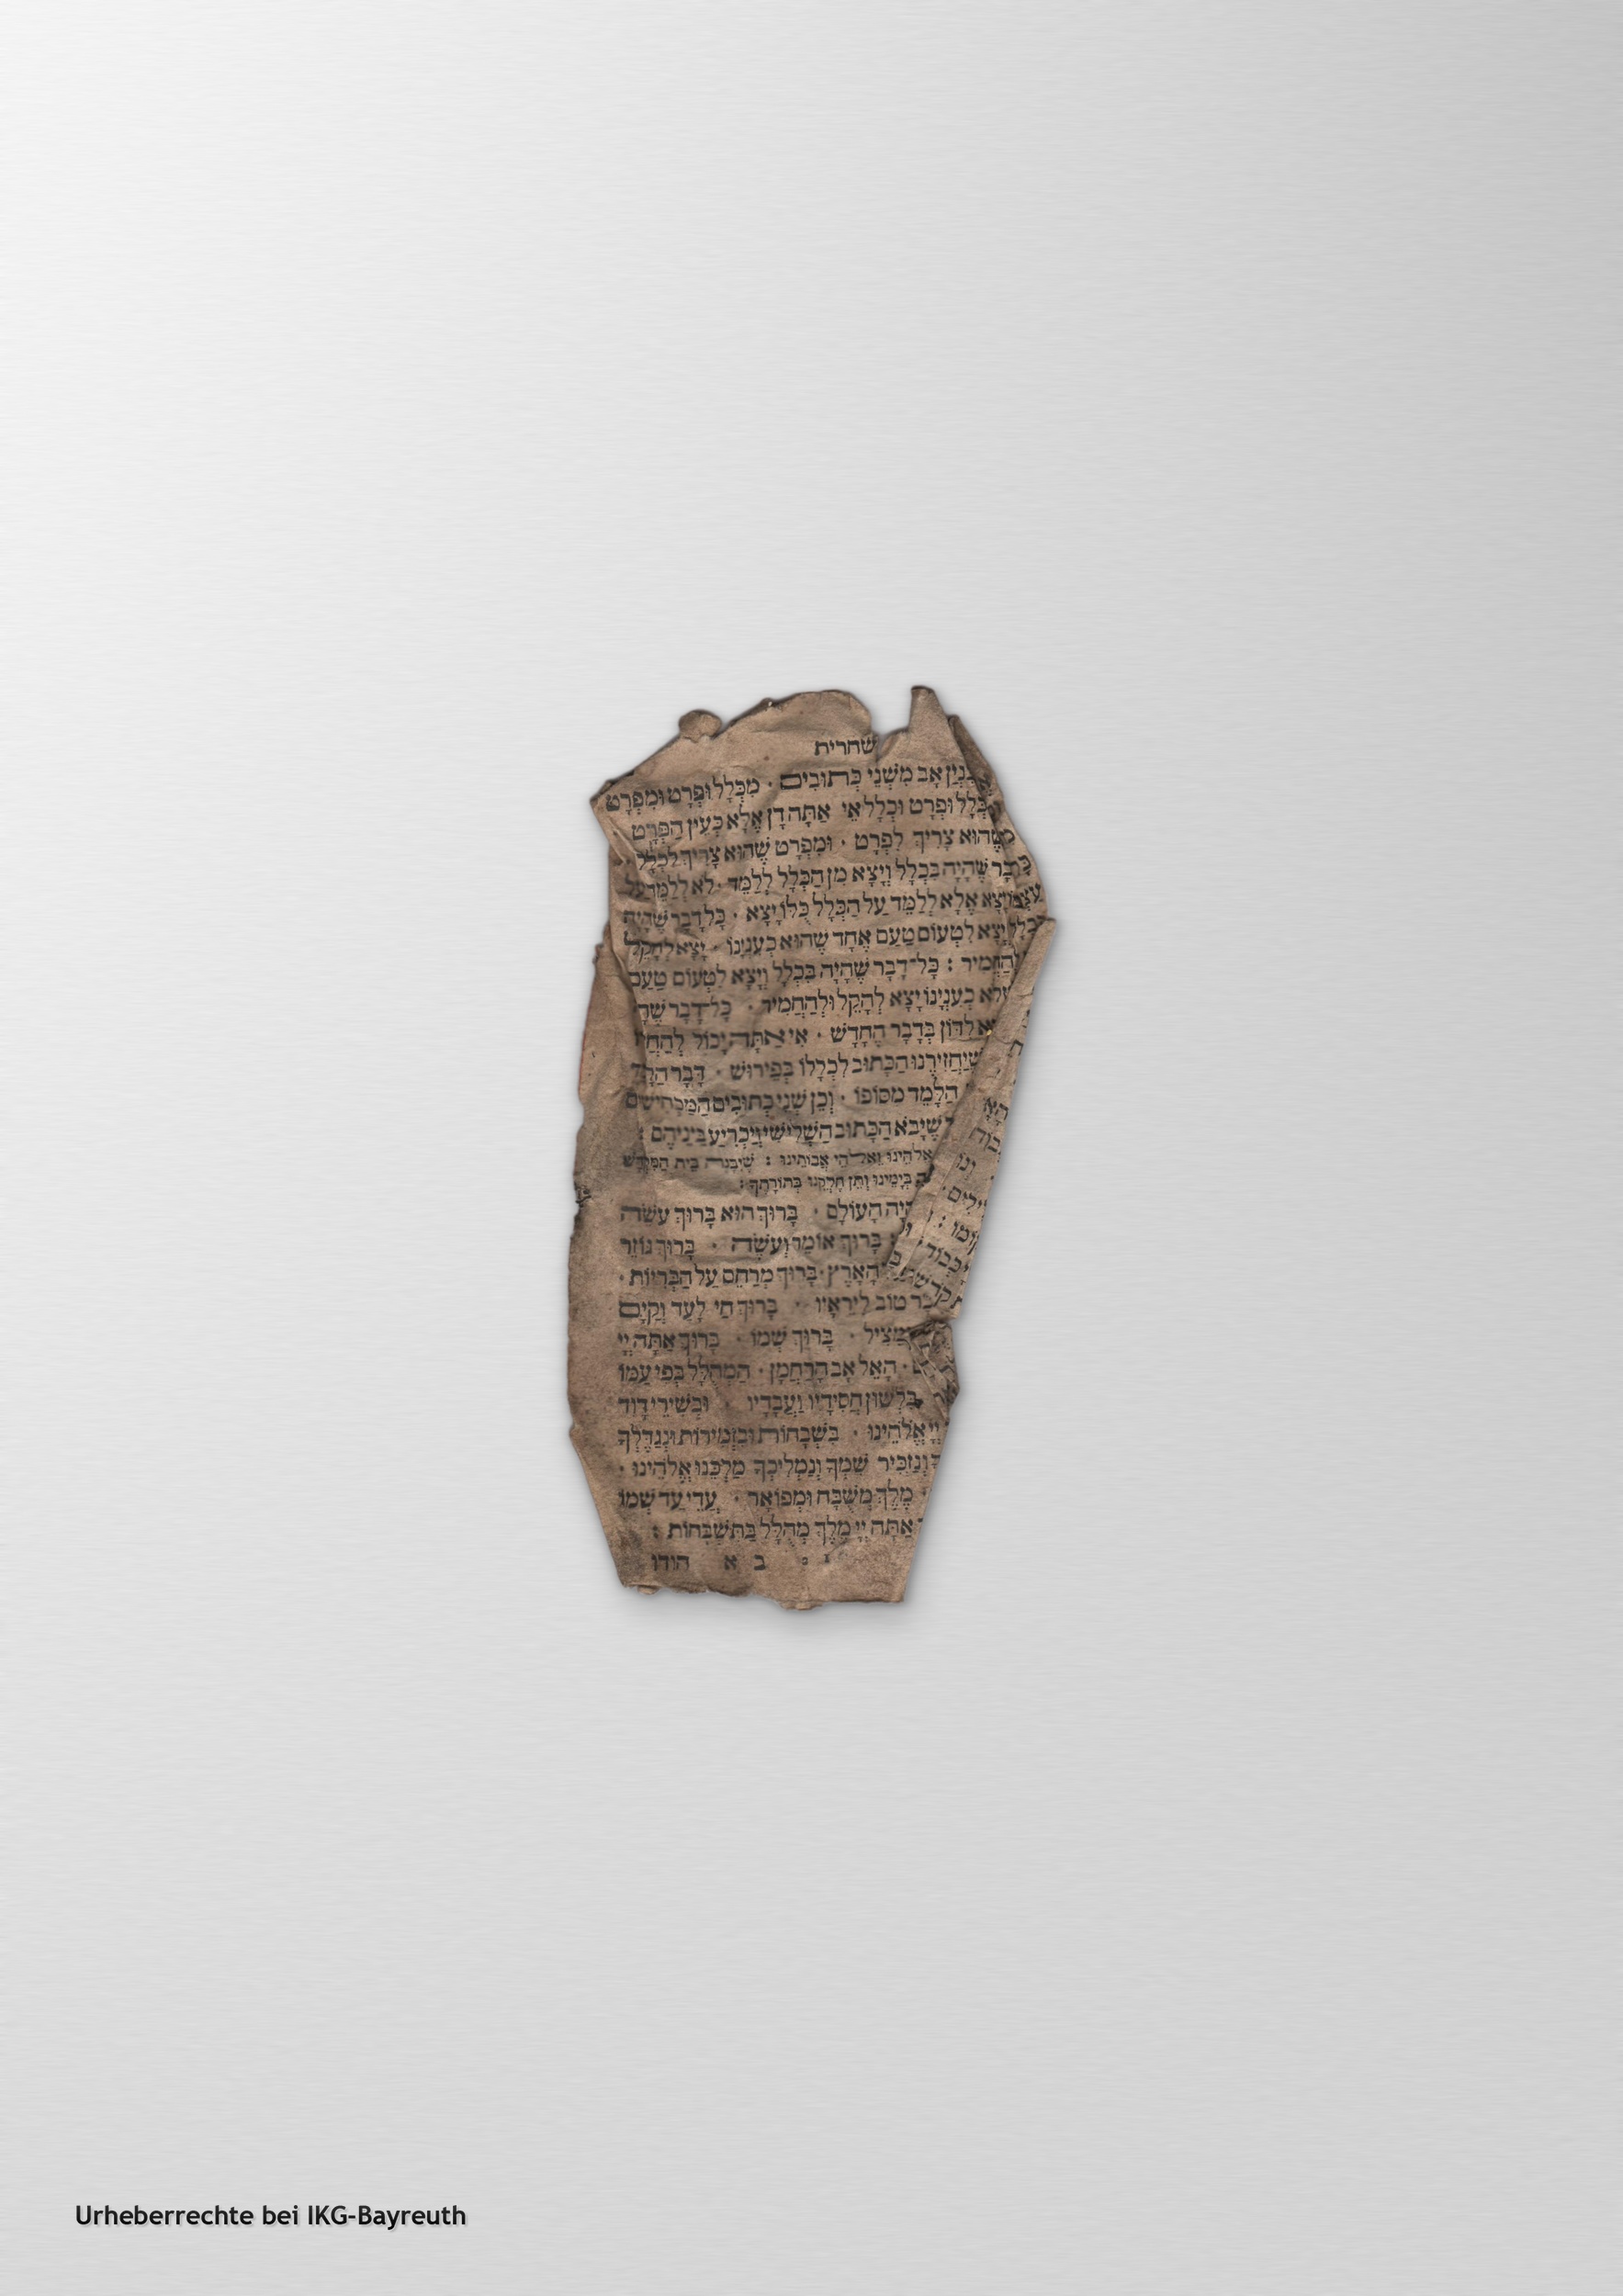 שחרית
בִּנְיַן אָב מִשְּׁנֵי כְּתוּבִים · מִכְּלָל וּפְרָט וּמִפְּרָט
כְּלָל וּפְרָט וּכְלָל אִי אַתָּה דָן אֶלָּא כְּעֵין הַפְּרָט
שֶׁהוּא צָרִיךְ לִפְרָט · וּמִפְּרָט שֶׁהוּא צָרִיךְ לִכְלָל
דָּבָר שֶׁהָיָה בִּכְלָל וְיָצָא מִן הַכְּלָל לְלַמֵּד · לֹא לְלַמֵּד עַל
יָצָא אֶלָּא לְלַמֵּד עַל הַכְּלָל כֻּלּוֹ יָצָא · כָּל דָּבָר שֶׁהָיָה
יָצָא לִטְעוֹם טַעַם אֶחָד שֶׁהוּא כְעִנְיָנוֹ · יָצָא לְהָקֵל
לְהַחְמִיר : כָּל־דָּבָר שֶׁהָיָה בִּכְלָל וְיָצָא לִטְעוֹם טַעַם
שֶׁלֹּא כְעִנְיָנוֹ יָצָא לְהָקֵל וּלְהַחֲמִיר · כָּל־דָּבָר שֶׁהָ
לִדּוֹן בְּדָבָר הֶחָדָשׁ · אִי אַתָּה יָכוֹל לְהַחֲ
שֶׁיַּחֲזִירֶנּוּ הַכָּתוּב לִכְלָלוֹ בְּפֵירוּשׁ · דָּבָר הַלָּמֵד
הַלָּמֵד מִסּוֹפוֹ · וְכֵן שְׁנֵי כְתוּבִים הַמַּכְחִישִׁים
שֶׁיָּבֹא הַכָּתוּב הַשְּׁלִישִׁי וְיַכְרִיעַ בֵּינֵיהֶם
אֱלֹהֵינוּ וֵאלֹהֵי אֲבוֹתֵינוּ : שֶׁיִּבָּנֶה בֵּית הַמִּקְדָּשׁ
בְּיָמֵינוּ וְתֵן חֶלְקֵנוּ בְּתוֹרָתֶךָ :
הָעוֹלָם · בָּרוּךְ הוּא בָּרוּךְ עֹשֶׂה
בָּרוּךְ אוֹמֵר וְעֹשֶׂה · בָּרוּךְ גּוֹזֵר
הָאָרֶץ · בָּרוּךְ מְרַחֵם עַל הַבְּרִיּוֹת ·
טוֹב לִירֵאָיו · בָּרוּךְ חַי לָעַד וְקַיָּם
מַצִּיל · בָּרוּךְ שְׁמוֹ · בָּרוּךְ אַתָּה יְיָ
הָאֵל אָב הָרַחֲמָן · הַמְהֻלָּל בְּפִי עַמּוֹ
בִּלְשׁוֹן חֲסִידָיו וַעֲבָדָיו · וּבְשִׁירֵי דָוִד
יְיָ אֱלֹהֵינוּ · בִּשְׁבָחוֹת וּבִזְמִירוֹת וּנְגַדֶּלְךָ
וְנַזְכִּיר שִׁמְךָ וְנַמְלִיכְךָ מַלְכֵּנוּ אֱלֹהֵינוּ ·
מֶלֶךְ מְשֻׁבָּח וּמְפוֹאָר · עֲדֵי עַד שְׁמוֹ
אַתָּה יְיָ מֶלֶךְ מְהֻלָּל בַּתִּשְׁבָּחוֹת :
ב א הודו
Urheberrechte bei IKG-Bayreuth